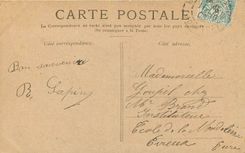 CARTE POSTALE
La Correspondance au verso n'est pas acceptée par tous les pays étrangers
(Se renseigner à la Poste)
Côté correspondance.
Côté adresse.
Bon souvenir
B.
Mademoiselle
chez
Institutrice
Ecole de la Madeleine
Evreux
Eure